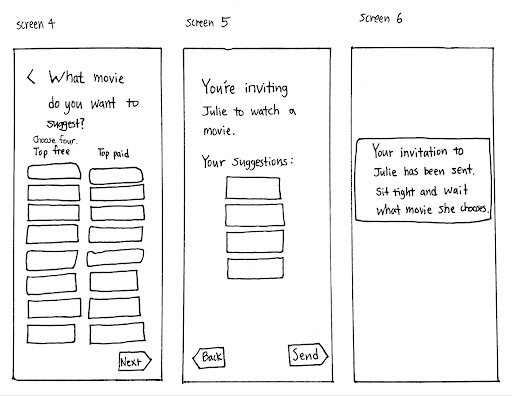 screen 4
< What movie
do you want to
suggest?
Choose four.
Top free
Top paid
Next
screen 5
You're inviting
Julie to watch a
movie.
Your suggestions:
Back
Send
screen 6
Your invitation to
Julie has been sent.
Sit tight and wait
what movie she chooses.